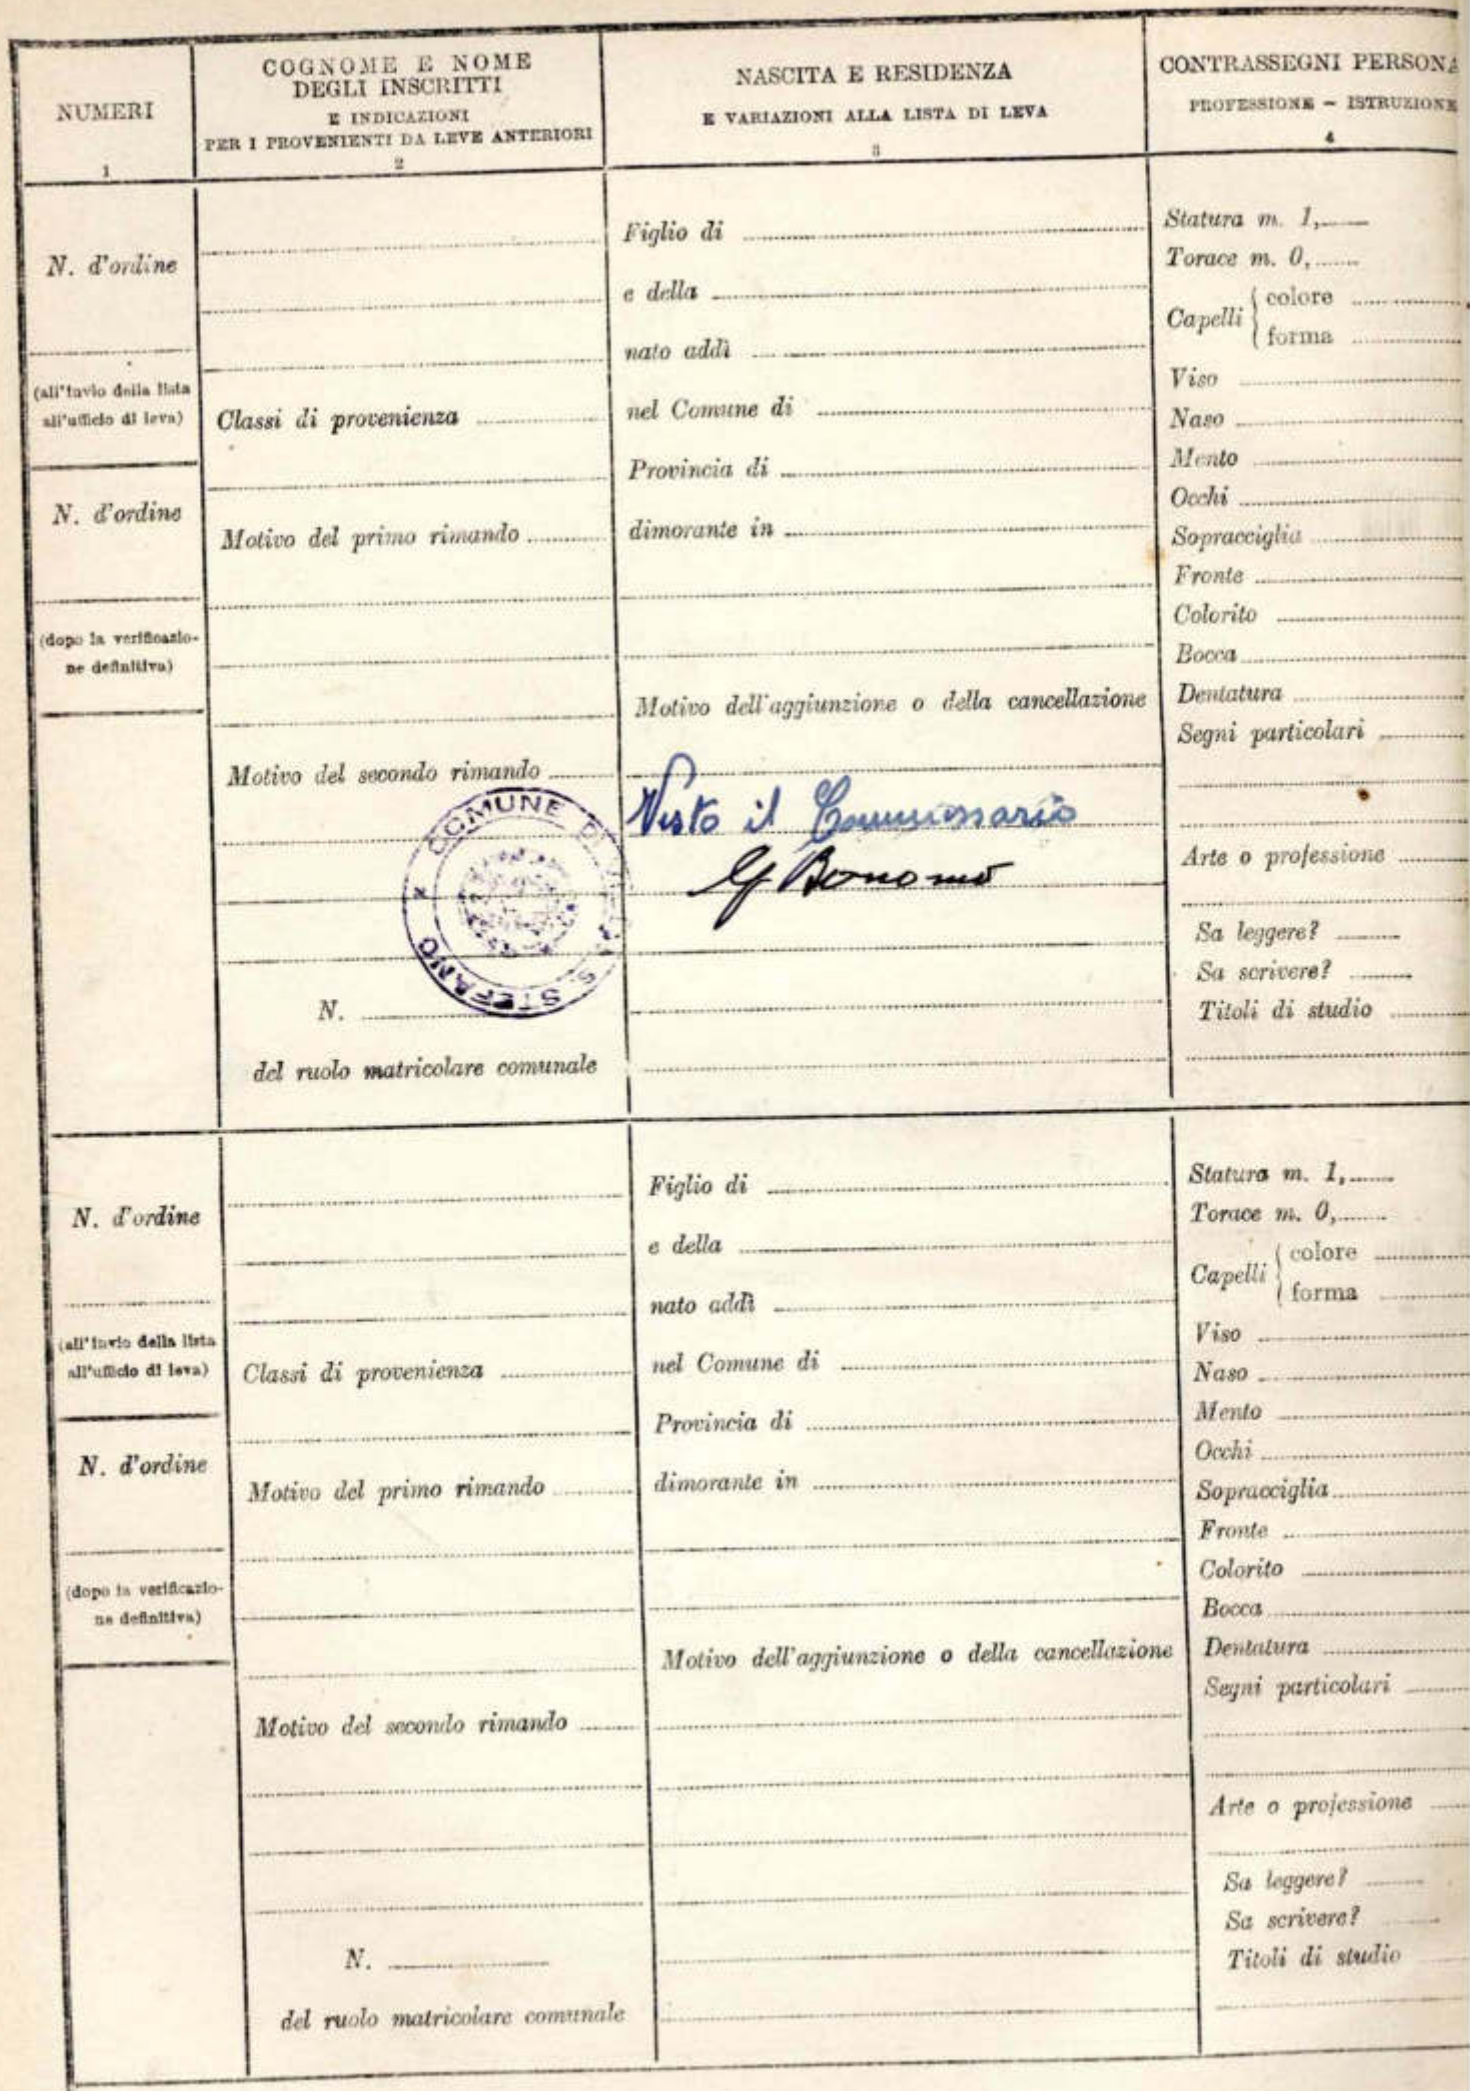 NUMERI
1
COGNOME E NOME
DEGLI INSCRITTI
E INDICAZIONI
PER I PROVENIENTI DA LEVE ANTERIORI
2
NASCITA E RESIDENZA
E VARIAZIONI ALLA LISTA DI LEVA
3
CONTRASSEGNI PERSONA
PROFESSIONE - ISTRUZIONE
4
N. d'ordine
(all'invio della lista
all'ufficio di leva)
N. d'ordine
(dopo la verificazio-
ne definitiva)
Classi di provenienza
Motivo del primo rimando
Motivo del secondo rimando
COMUNE DI
S. STEFANO
N.
del ruolo matricolare comunale
Figlio di
e della
nato addì
nel Comune di
Provincia di
dimorante in
Motivo dell'aggiunzione o della cancellazione
Visto il Commissario
G Bonomo
Statura m. 1,
Torace m. 0,
Capelli { colore
forma
Viso
Naso
Mento
Occhi
Sopracciglia
Fronte
Colorito
Bocca
Dentatura
Segni particolari
Arte o professione
Sa leggere?
Sa scrivere?
Titoli di studio
N. d'ordine
(all'invio della lista
all'ufficio di leva)
N. d'ordine
(dopo la verificazio-
ne definitiva)
Classi di provenienza
Motivo del primo rimando
Motivo del secondo rimando
N.
del ruolo matricolare comunale
Figlio di
e della
nato addì
nel Comune di
Provincia di
dimorante in
Motivo dell'aggiunzione o della cancellazione
Statura m. 1,
Torace m. 0,
Capelli { colore
forma
Viso
Naso
Mento
Occhi
Sopracciglia
Fronte
Colorito
Bocca
Dentatura
Segni particolari
Arte o professione
Sa leggere?
Sa scrivere?
Titoli di studio